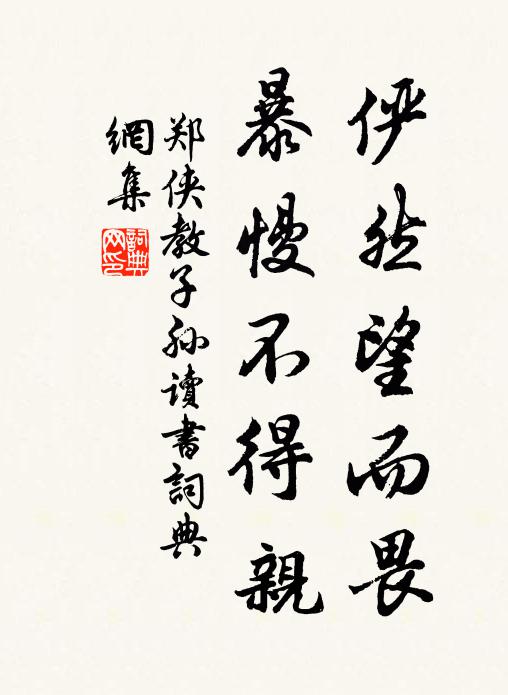 俨然望而畏
暴慢不得親
郑侠教子孙讀書詞典
網集
詞典
网印